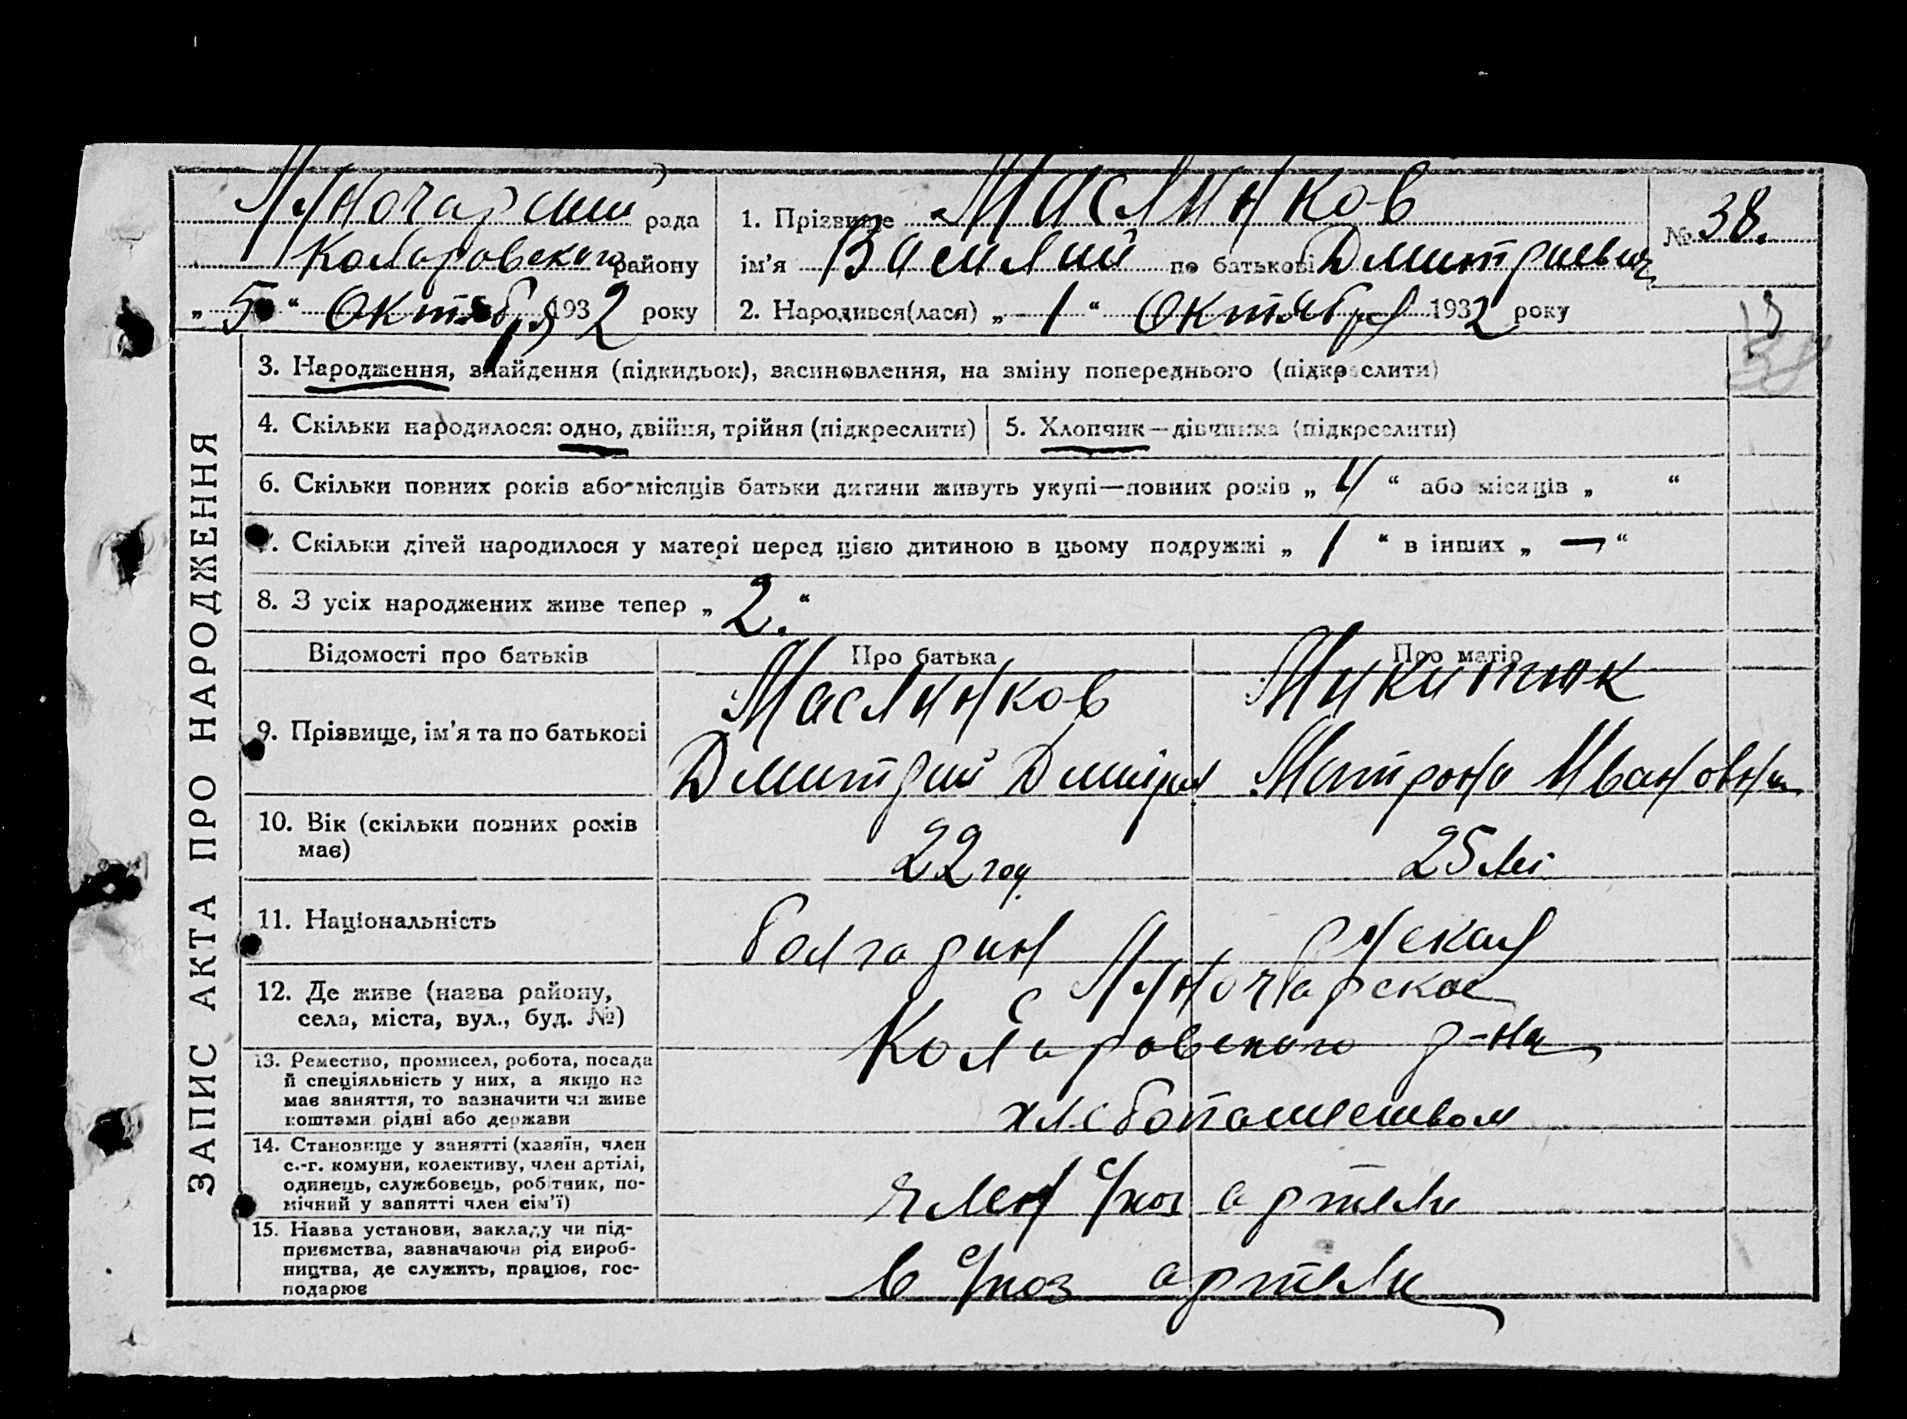 ЗАПИС АКТА ПРО НАРОДЖЕННЯ
Луночарский рада
Коларовского району
„ 5 “ Октября 1932 року
1. Прізвище Маслинков
ім’я Василий по батькові Дмитриевич
2. Народився(лася) „ 1 “ Октября 1932 року
№ 38.
38
3. Народження, знайдення (підкидьок), засиновлення, на зміну попереднього (підкреслити)
4. Скільки народилося: одно, двійня, трійня (підкреслити)
5. Хлопчик—дівчинка (підкреслити)
6. Скільки повних років або місяців батьки дитини живуть укупі—повних років „ 4 “ або місяців „ “
7. Скільки дітей народилося у матері перед цією дитиною в цьому подружжі „ 1 “ в інших „ — “
8. З усіх народжених живе тепер „ 2. “
Відомості про батьків
Про батька
Про матір
9. Прізвище, ім’я та по батькові
Маслинков
Дмитрий Дмитри
Микитюк
Матрона Ивановна
10. Вік (скільки повних років
має)
22 год
25 лет
11. Національність
болгарин
руская
12. Де живе (назва району,
села, міста, вул., буд. №)
С Луночарское
Коларовского р-на
13. Ремество, промисел, робота, посада
й спеціяльність у них, а якщо не
має заняття, то зазначити чи живе
коштами рідні або держави
хлебопашеством
14. Становище у занятті (хазяїн, член
с.-г. комуни, колективу, член артілі,
одинець, службовець, робітник, по-
мічний у занятті член сім’ї)
член с/хоз артели
15. Назва установи, закладу чи під-
приємства, зазначаючи рід вироб-
ництва, де служить, працює, гос-
подарює
в с/хоз артели